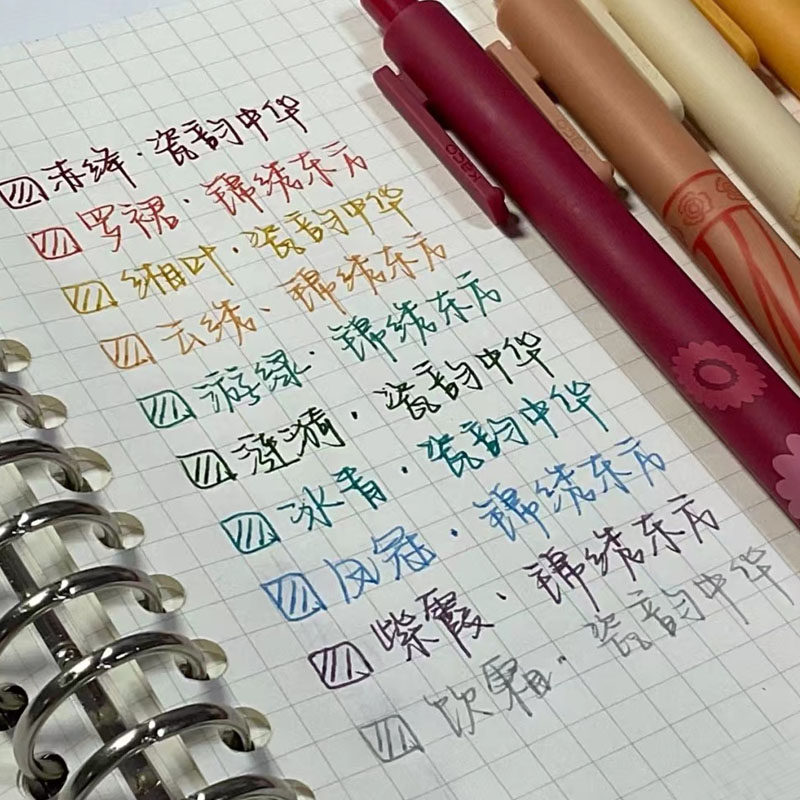 赤绛·瓷韵中华
罗裙·锦绣东方
缃叶·瓷韵中华
云绣·锦绣东方
游绿·锦绣东方
涟漪·瓷韵中华
冰青·瓷韵中华
凤冠·锦绣东方
紫霞·锦绣东方
饮霜·瓷韵中华
KACO
KACO